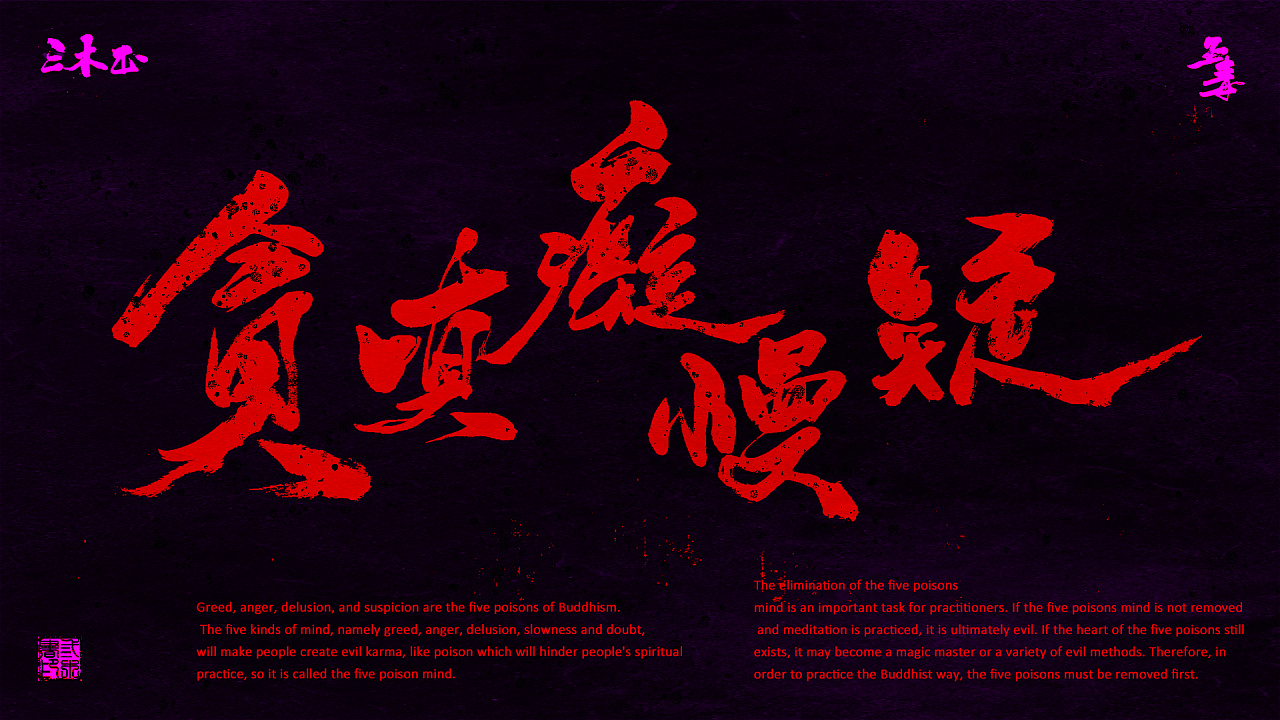 三木正
五毒
貪嗔癡慢疑
Greed, anger, delusion, and suspicion are the five poisons of Buddhism.
The five kinds of mind, namely greed, anger, delusion, slowness and doubt,
will make people create evil karma, like poison which will hinder people's spiritual
practice, so it is called the five poison mind.
The elimination of the five poisons
mind is an important task for practitioners. If the five poisons mind is not removed
and meditation is practiced, it is ultimately evil. If the heart of the five poisons still
exists, it may become a magic master or a variety of evil methods. Therefore, in
order to practice the Buddhist way, the five poisons must be removed first.